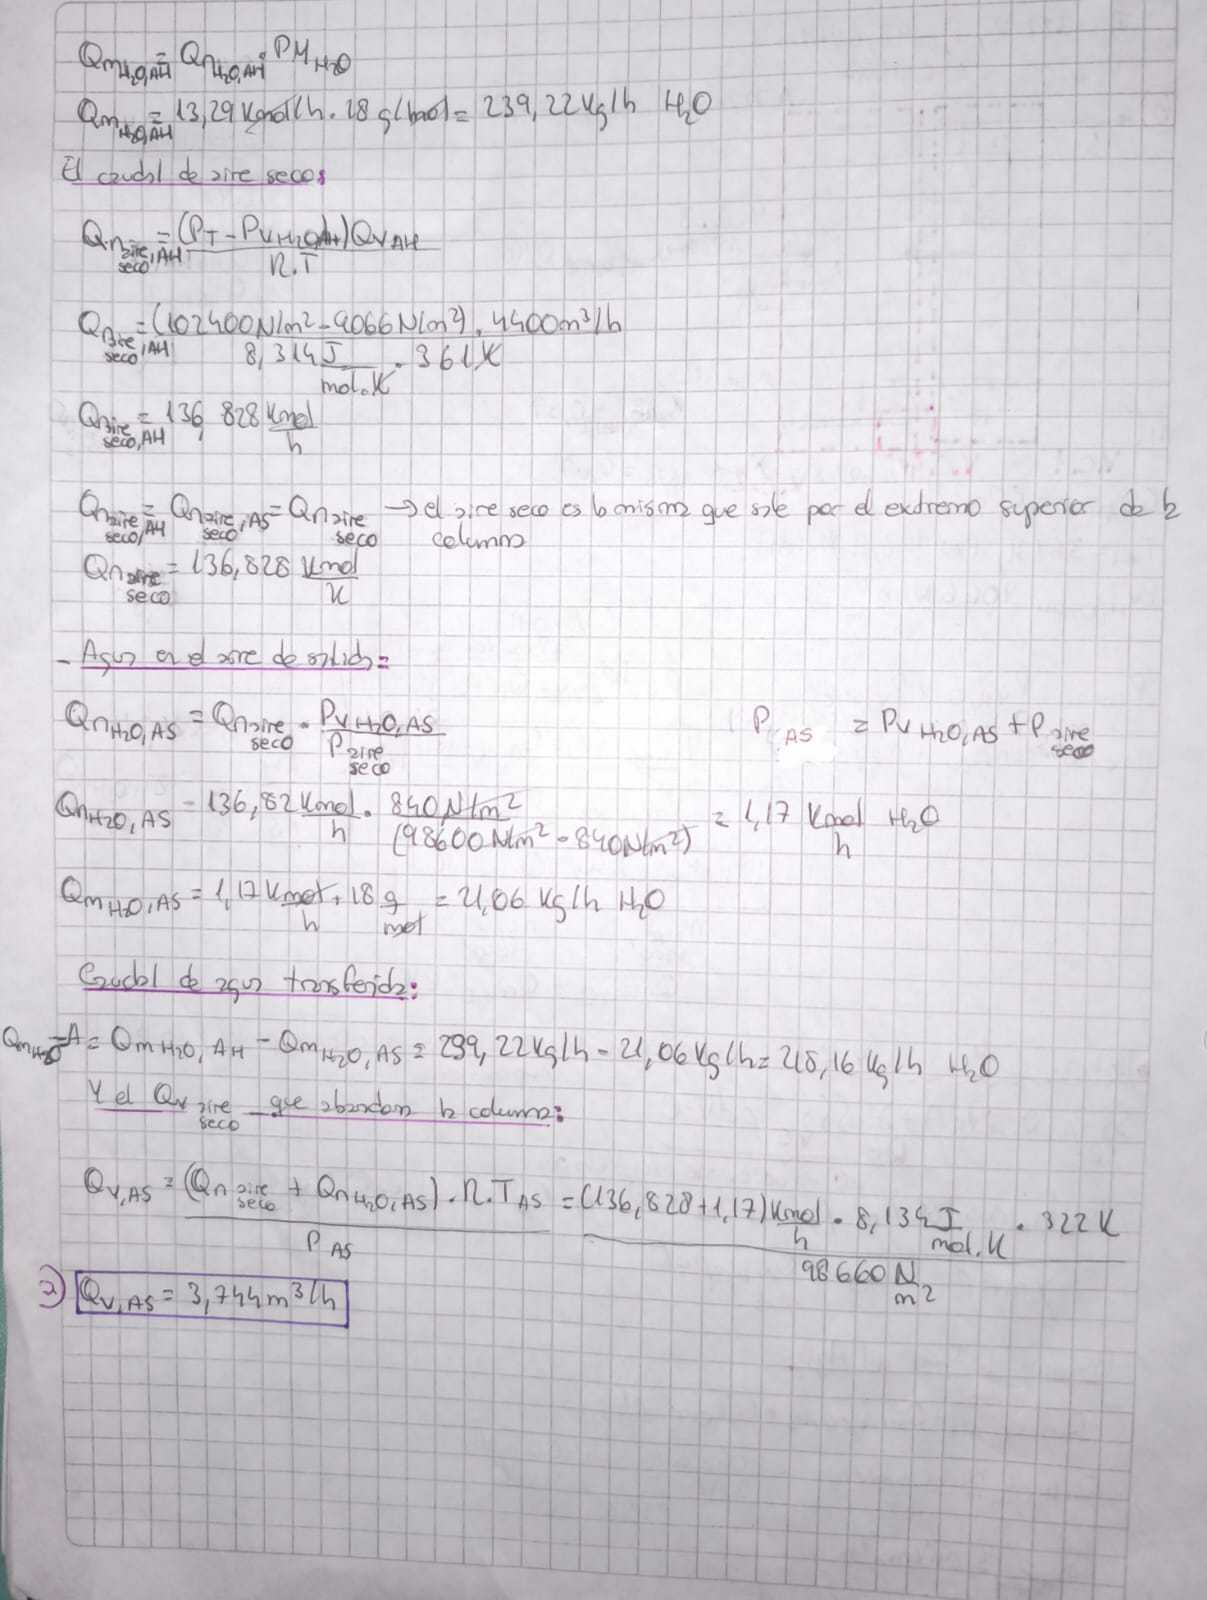 QmH₂O,AH = QnH₂O,AH · PM H₂O
QmH₂O,AH = 13,29 Kmol/h · 18 g/mol = 239,22 Kg/h H₂O
El caudal de aire seco:
Qn aire seco,AH = (PT - PvH₂O,AH) QvAH / R.T
Qn aire seco,AH = (102400 N/m² - 9066 N/m²) · 4400 m³/h / 8,314 J/mol.K · 361 K
Qn aire seco,AH = 136,828 Kmol/h
Qn aire seco,AH = Qn aire seco,AS = Qn aire seco → el aire seco es lo mismo que sale por el extremo superior de la columna
Qn aire seco = 136,828 Kmol/K
- Agua en el aire de salida:
QnH₂O,AS = Qn aire seco · PvH₂O,AS / P aire seco P AS = PvH₂O,AS + P aire seco
QnH₂O,AS = 136,82 Kmol/h · 840 N/m² / (98600 N/m² - 840 N/m²) = 1,17 Kmol/h H₂O
QmH₂O,AS = 1,17 Kmol/h · 18 g/mol = 21,06 Kg/h H₂O
Caudal de agua transferida:
QmH₂O-A = QmH₂O,AH - QmH₂O,AS = 239,22 Kg/h - 21,06 Kg/h = 218,16 Kg/h H₂O
Y el Qv aire seco que abandona la columna:
Qv,AS = (Qn aire seco + QnH₂O,AS) · R.TAS / P AS = (136,828 + 1,17) Kmol/h · 8,134 J/mol.K · 322 K / 98660 N/m²
a) Qv,AS = 3,744 m³/h